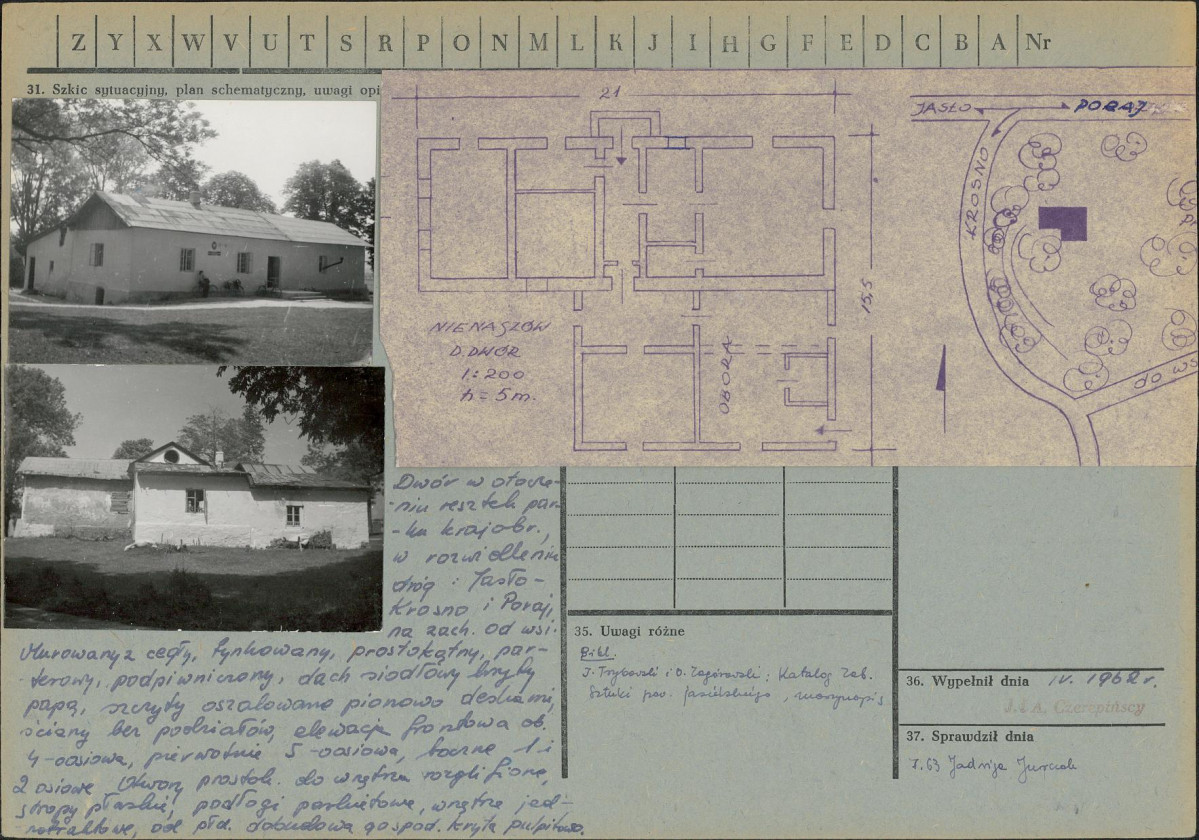 Z Y X W V U T S R P O N M L K J I H G F E D C B A Nr
31. Szkic sytuacyjny, plan schematyczny, uwagi opi
21
15,5
NIENASZÓW
D. DWÓR
1:200
h = 5m.
OBORA
JASŁO
PORAJ
KROSNO
do ws
Dwór w otocze-
-niu resztek par-
-ku krajobr.,
w rozwidleniu
dróg : Jasło-
Krosno i Poraj,
na zach. od wsi.
Murowany z cegły, tynkowany, prostokątny, par-
-terowy, podpiwniczony, dach siodłowy kryty
papą, szczyty oszalowane pionowo deskami,
ściany bez podziałów, elewacja frontowa ob.
4-osiowa, pierwotnie 5-osiowa, boczne 1 i
2 osiowe. Otwory prostok. do wnętrza rozglifione,
stropy płaskie, podłogi parkietowe, wnętrze jed-
-notraktowe, od płd. dobudowa gospod. kryta pulpitowo.
35. Uwagi różne
Bibl.
J. Trybowski i O. Zagórowski; Katalog Zab.
Sztuki pow. jasielskiego, maszynopis
36. Wypełnił dnia IV. 1962 r.
J. i A. Czerepińscy
37. Sprawdził dnia
I.63 Jadwiga Jurczak